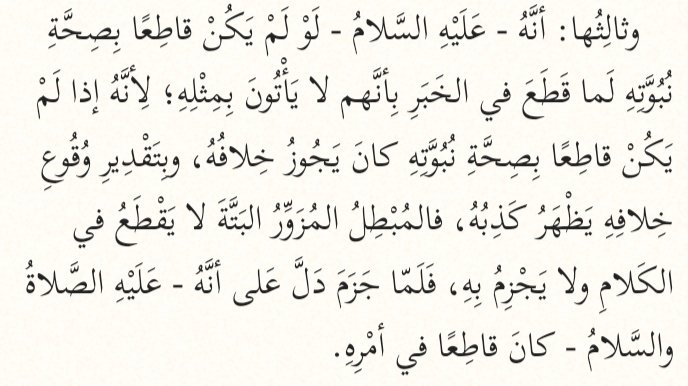 وثالِثُها: أنَّهُ - عَلَيْهِ السَّلامُ - لَوْ لَمْ يَكُنْ قاطِعًا بِصِحَّةِ
نُبُوَّتِهِ لَما قَطَعَ في الخَبَرِ بِأنَّهم لا يَأْتُونَ بِمِثْلِهِ؛ لِأنَّهُ إذا لَمْ
يَكُنْ قاطِعًا بِصِحَّةِ نُبُوَّتِهِ كانَ يَجُوزُ خِلافُهُ، وبِتَقْدِيرِ وُقُوعِ
خِلافِهِ يَظْهَرُ كَذِبُهُ، فالمُبْطِلُ المُزَوِّرُ البَتَّةَ لا يَقْطَعُ في
الكَلامِ ولا يَجْزِمُ بِهِ، فَلَمّا جَزَمَ دَلَّ عَلى أنَّهُ - عَلَيْهِ الصَّلاةُ
والسَّلامُ - كانَ قاطِعًا في أمْرِهِ.